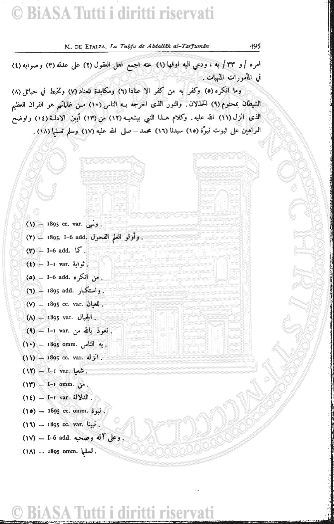 © BiASA Tutti i diritti riservati
M. DE EPALZA, La Tuḥfa de Abdallāh al-Tarȳumān 495
امره / و ٣٣ / به ، ودعى اليه اوفها (١) عنه اجمع اهل العقول (٢) على عدقه (٣) وصوابه (٤)
في
وما انكره (٥) وكفر به من كفر الا عنادا (٦) ومكابدة للعناد (٧) وتخبط في حبائل (٨)
الشيطان (٩) الخذلان . والنور الذي اخرجه به الناس (١٠) من هو القران العظيم
الذي انزل (١١) الله عليه . وكلام هذا النبي (١٢) من (١٣) أبين الادلة (١٤) واوضح
البراهين على ثبوت نبوة (١٥) سيدنا (١٦) محمد – صلى الله عليه (١٧) وسلم تسليما (١٨) .
(١) — 1895 cc. var. ونهى .
(٢) — 1895, I-6 add. وأولو العلم الفحول .
(٣) — I-6 add. كما .
(٤) — I-1 var. ثوابة .
(٥) — I-6 add. من انكره .
(٦) — 1895 add. واستكبار .
(٧) — 1895 cc. var. للعيان .
(٨) — 1895 var. الجبال .
(٩) — I-1 var. نعوذ بالله من .
(١٠) — 1895 omm. به الناس .
(١١) — 1895 cc. var. انزله .
(١٢) — I-1 var. شعيا .
(١٣) — I-1 omm. من .
(١٤) — I-1 var. الثلاثة .
(١٥) — 1895 cc. omm. نبوة .
(١٦) — 1895 cc. var. نبينا .
(١٧) — I-6 add. وعلى آله وصحبه .
(١٨) — 1895 omm. تسليما .
© BiASA Tutti i diritti riservati